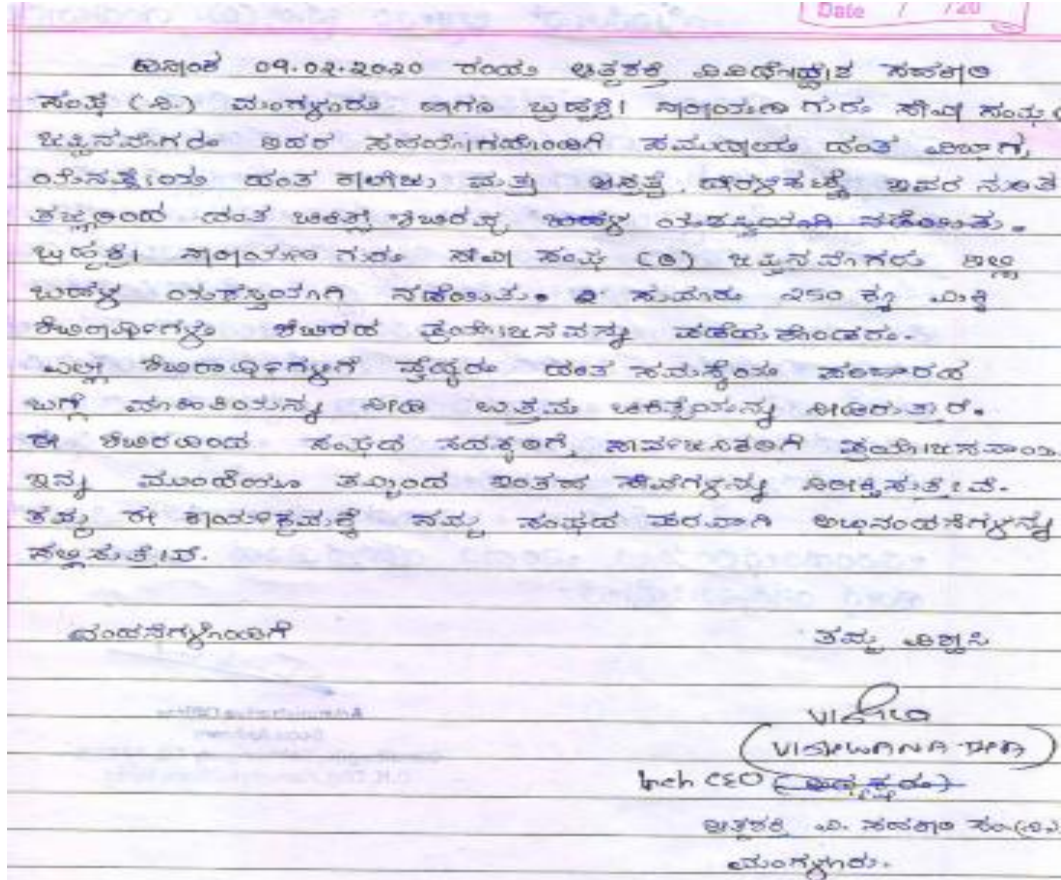 Date / /20
ದಿನಾಂಕ 09.02.2020 ರಂದು ಆತ್ಮಶಕ್ತಿ ವಿವಿಧೋದ್ದೇಶ ಸಹಕಾರಿ
ಸಂಘ (ನಿ.) ಮಂಗಳೂರು ಹಾಗೂ ಬ್ರಹ್ಮಶ್ರೀ ನಾರಾಯಣ ಗುರು ಸೇವಾ ಸಂಘ (
ಜಪ್ಪಿನಮೊಗರು ಇದರ ಸಹಯೋಗದೊಂದಿಗೆ ಸಮುದಾಯ ದಂತ ವಿಭಾಗ,
ಯೆನಪೋಯ ದಂತ ಕಾಲೇಜು ಮತ್ತು ಆಸ್ಪತ್ರೆ ದೇರಳಕಟ್ಟೆ ಇವರ ನುರಿತ
ತಜ್ಞರಿಂದ ದಂತ ಚಿಕಿತ್ಸಾ ಶಿಬಿರವು ಬಹಳ ಯಶಸ್ವಿಯಾಗಿ ನಡೆಯಿತು.
ಬ್ರಹ್ಮಶ್ರೀ ನಾರಾಯಣ ಗುರು ಸೇವಾ ಸಂಘ (ರಿ) ಜಪ್ಪಿನಮೊಗರು ಇಲ್ಲಿ
ಬಹಳ ಯಶಸ್ವಿಯಾಗಿ ನಡೆಯಿತು. ಸುಮಾರು 250 ಕ್ಕೂ ಮಿಕ್ಕಿ
ಶಿಬಿರಾರ್ಥಿಗಳು ಶಿಬಿರದ ಪ್ರಯೋಜನವನ್ನು ಪಡೆದುಕೊಂಡರು.
ಎಲ್ಲಾ ಶಿಬಿರಾರ್ಥಿಗಳಿಗೆ ವೈದ್ಯರು ದಂತ ಸಮಸ್ಯೆಯ ಪರಿಹಾರದ
ಬಗ್ಗೆ ಮಾಹಿತಿಯನ್ನು ನೀಡಿ ಉತ್ತಮ ಚಿಕಿತ್ಸೆಯನ್ನು ನೀಡಿರುತ್ತಾರೆ.
ಈ ಶಿಬಿರದಿಂದ ಸಂಘದ ಸದಸ್ಯರಿಗೆ, ಸಾರ್ವಜನಿಕರಿಗೆ ಪ್ರಯೋಜನವಾಯಿ
ಇನ್ನು ಮುಂದೆಯೂ ತಮ್ಮಿಂದ ಇಂತಹ ಸೇವೆಗಳನ್ನು ನಿರೀಕ್ಷಿಸುತ್ತೇವೆ.
ತಮ್ಮ ಈ ಕಾರ್ಯಕ್ರಮಕ್ಕೆ ನಮ್ಮ ಸಂಘದ ಪರವಾಗಿ ಅಭಿನಂದನೆಗಳನ್ನು
ಸಲ್ಲಿಸುತ್ತೇವೆ.
ವಂದನೆಗಳೊಂದಿಗೆ
ತಮ್ಮ ವಿಶ್ವಾಸಿ
Inch CEO (ಅಧ್ಯಕ್ಷರು)
ಆತ್ಮಶಕ್ತಿ ವಿ. ಸಹಕಾರಿ ಸಂ.(ನಿ.)
ಮಂಗಳೂರು.